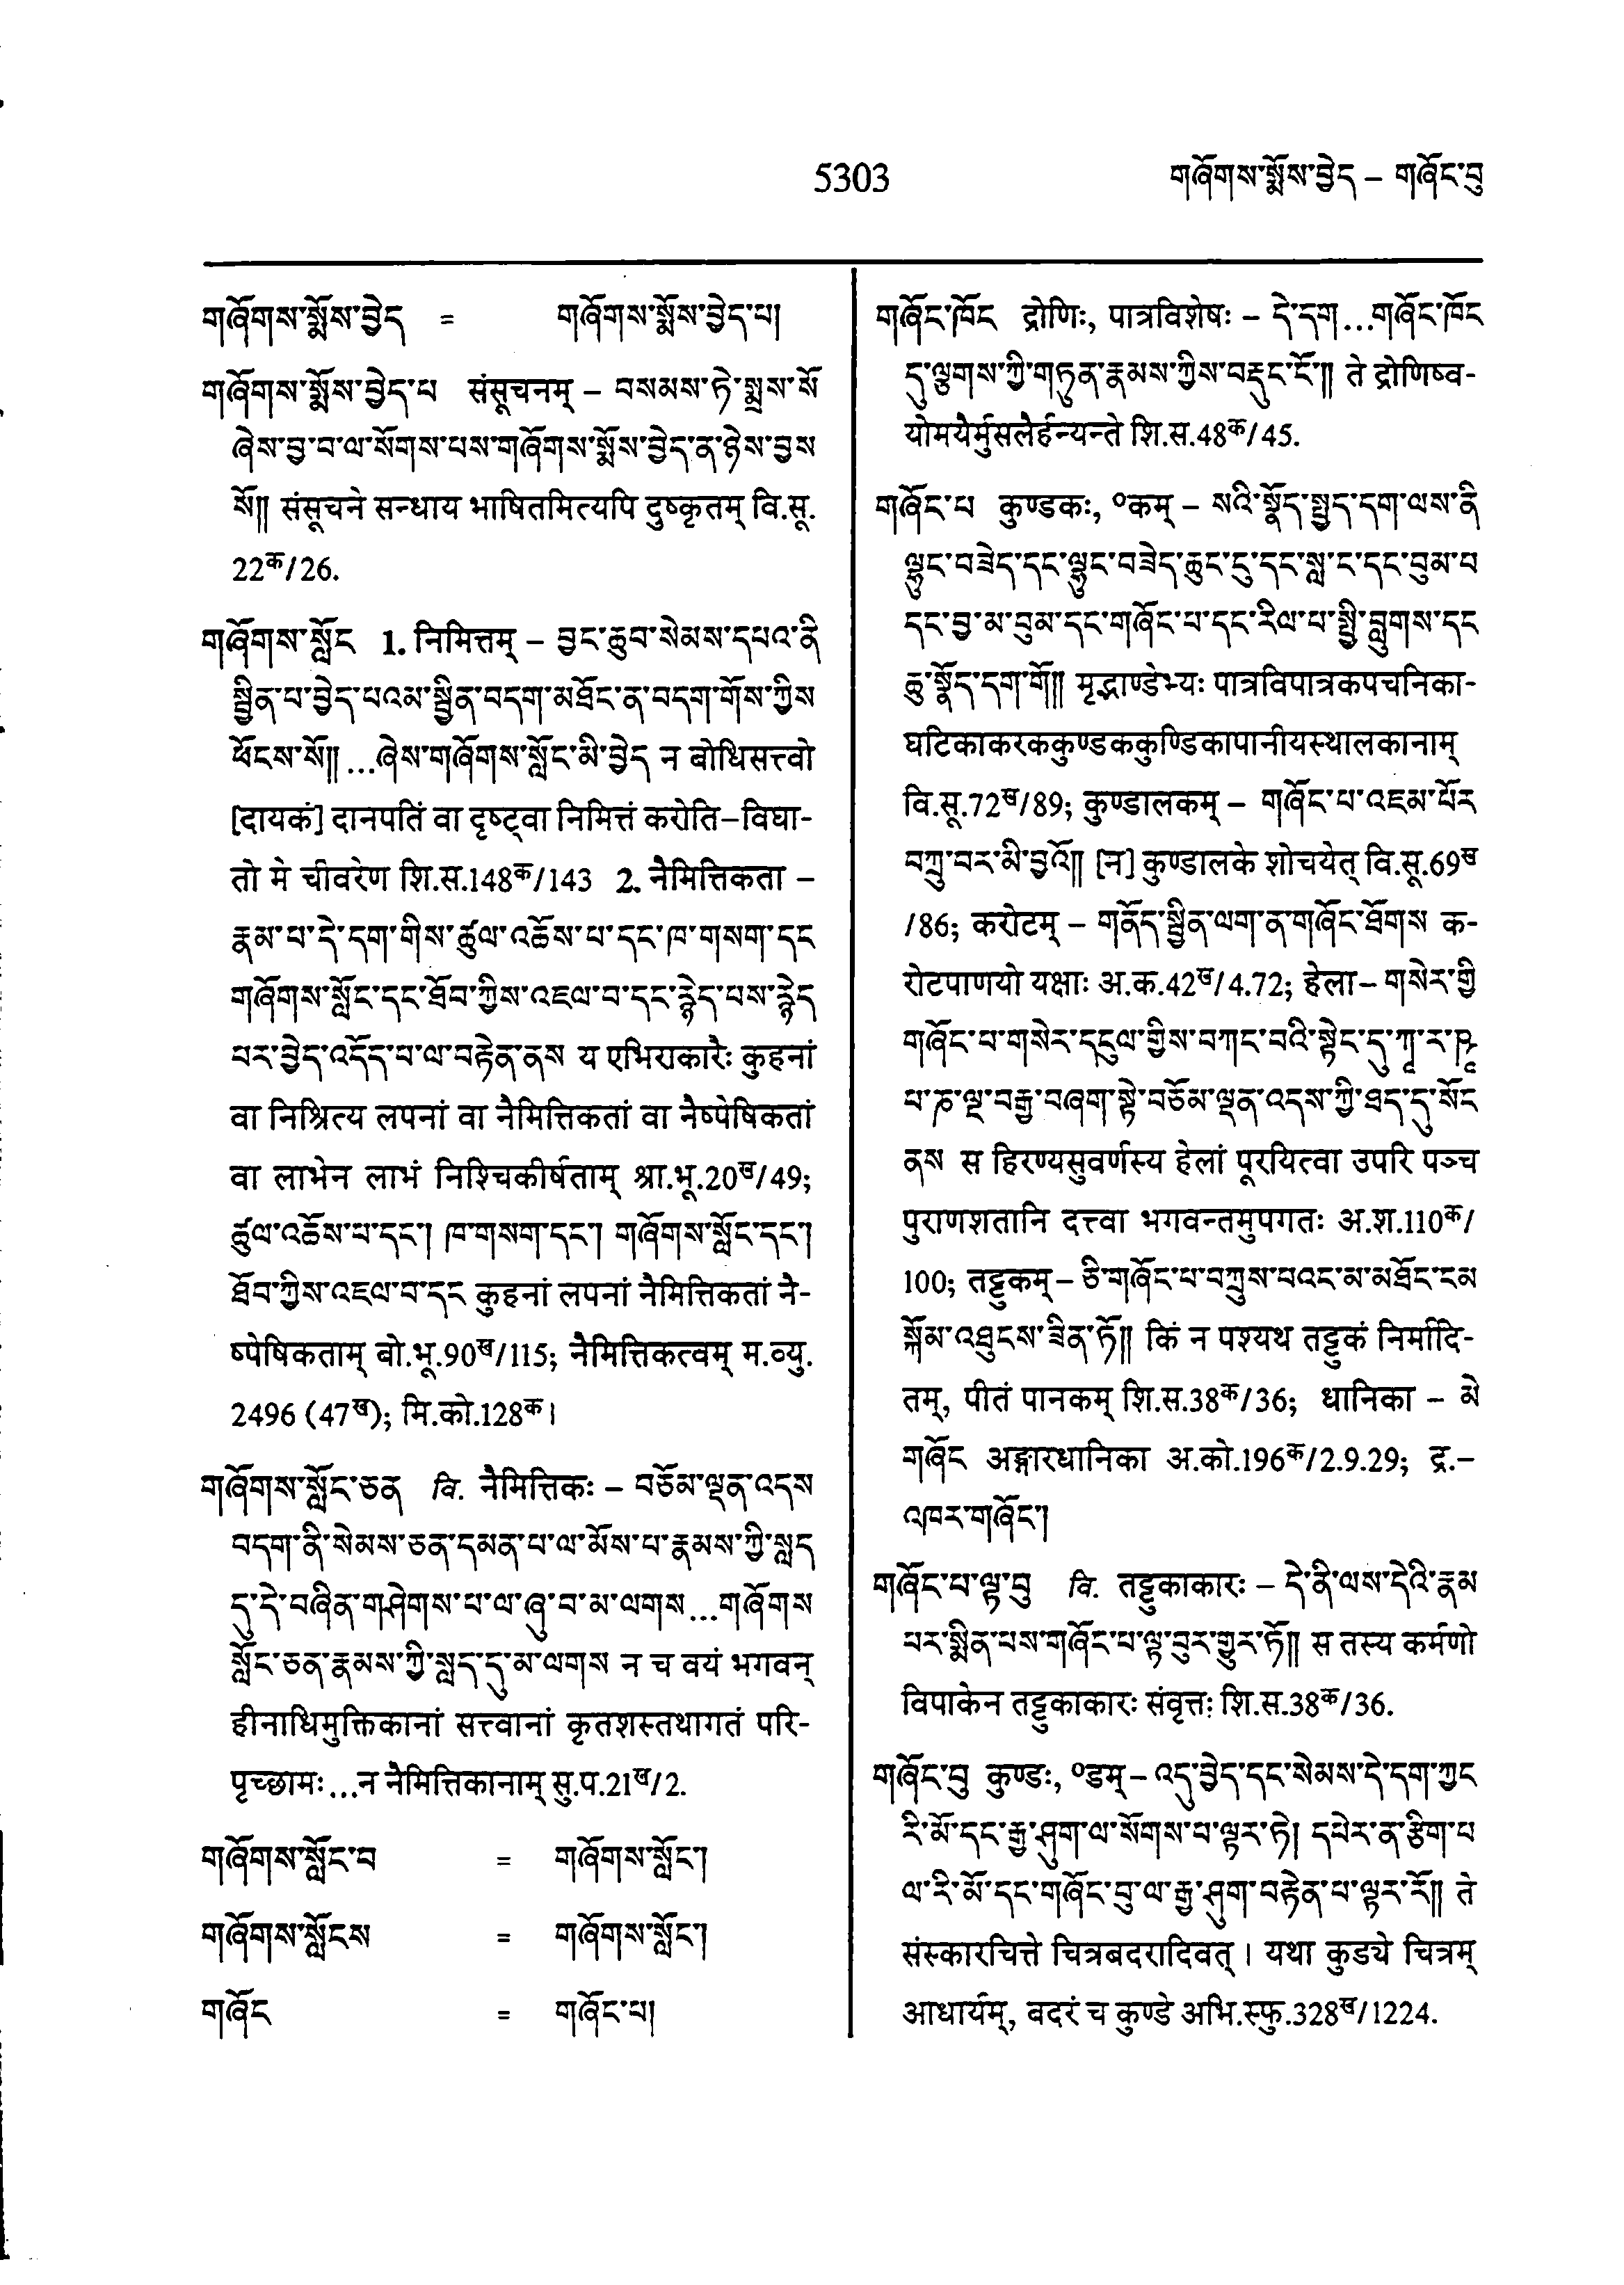 5303 གཞོགས་སྨོས་བྱེད – གཞོང་བུ
གཞོགས་སྨོས་བྱེད = གཞོགས་སྨོས་བྱེད་པ།
གཞོགས་སྨོས་བྱེད་པ संसूचनम् – བསམས་ཏེ་སྨྲས་སོ
ཞེས་བྱ་བ་ལ་སོགས་པས་གཞོགས་སྨོས་བྱེད་ན་ཉེས་བྱས
སོ།། संसूचने सन्धाय भाषितमित्यपि दुष्कृतम् वि.सू.
22क/26.
གཞོགས་སློང 1. निमित्तम् – བྱང་ཆུབ་སེམས་དཔའ་ནི
སྦྱིན་པ་བྱེད་པའམ་སྦྱིན་བདག་མཐོང་ན་བདག་གོས་ཀྱིས
ཕོངས་སོ།། ...ཞེས་གཞོགས་སློང་མི་བྱེད न बोधिसत्त्वो
[दायकं] दानपतिं वा दृष्ट्वा निमित्तं करोति–विघा-
तो मे चीवरेण शि.स.148क/143 2. नैमित्तिकता –
རྣམ་པ་དེ་དག་གིས་ཚུལ་འཆོས་པ་དང་ཁ་གསག་དང
གཞོགས་སློང་དང་ཐོབ་ཀྱིས་འཇལ་བ་དང་རྙེད་པས་རྙེད
པར་བྱེད་འདོད་པ་ལ་བརྟེན་ནས य एभिराकारैः कुहनां
वा निश्रित्य लपनां वा नैमित्तिकतां वा नैष्पेषिकतां
वा लाभेन लाभं निश्चिकीर्षताम् श्रा.भू.20ख/49;
ཚུལ་འཆོས་པ་དང་། ཁ་གསག་དང་། གཞོགས་སློང་དང་།
ཐོབ་ཀྱིས་འཇལ་བ་དང कुहनां लपनां नैमित्तिकतां नै-
ष्पेषिकताम् बो.भू.90ख/115; नैमित्तिकत्वम् म.व्यु.
2496 (47ख); मि.को.128क।
གཞོགས་སློང་ཅན वि. नैमित्तिकः – བཅོམ་ལྡན་འདས
བདག་ནི་སེམས་ཅན་དམན་པ་ལ་མོས་པ་རྣམས་ཀྱི་སླད
དུ་དེ་བཞིན་གཤེགས་པ་ལ་ཞུ་བ་མ་ལགས...གཞོགས
སློང་ཅན་རྣམས་ཀྱི་སླད་དུ་མ་ལགས न च वयं भगवन्
हीनाधिमुक्तिकानां सत्त्वानां कृतशस्तथागतं परि-
पृच्छामः ...न नैमित्तिकानाम् सु.प.21ख/2.
གཞོགས་སློང་བ = གཞོགས་སློང་།
གཞོགས་སློངས = གཞོགས་སློང་།
གཞོང = གཞོང་པ།
གཞོང་ཁོང द्रोणिः, पात्रविशेषः – དེ་དག...གཞོང་ཁོང
དུ་ལྕགས་ཀྱི་གཏུན་རྣམས་ཀྱིས་བརྡུང་ངོ་།། ते द्रोणिष्व-
योमयैर्मुसलैर्हन्यन्ते शि.स.48क/45.
གཞོང་པ कुण्डकः, ०कम् – སའི་སྣོད་སྤྱད་དག་ལས་ནི
ལྷུང་བཟེད་དང་ལྷུང་བཟེད་ཆུང་ངུ་དང་སླ་ང་དང་བུམ་བ
དང་བྱ་མ་བུམ་དང་གཞོང་པ་དང་རིལ་པ་སྤྱི་བླུགས་དང
ཆུ་སྣོད་དག་གོ།། मृद्भाण्डेभ्यः पात्रविपात्रकपचनिका-
घटिकाकरककुण्डककुण्डिकापानीयस्थालकानाम्
वि.सू.72ख/89; कुण्डालकम् – གཞོང་པ་འཇམ་པོར
བཀྲུ་བར་མི་བྱའོ།། [न] कुण्डालके शोचयेत् वि.सू.69ख
/86; करोटम् – གནོད་སྦྱིན་ལག་ན་གཞོང་ཐོགས क-
रोटपाणयो यक्षाः अ.क.42ख/4.72; हेला– གསེར་གྱི
གཞོང་པ་གསེར་དངུལ་གྱིས་བཀང་བའི་སྟེང་དུ་ཀཱ་ར་ཥཱ
པ་ཎ་ལྔ་བརྒྱ་བཞག་སྟེ་བཅོམ་ལྡན་འདས་ཀྱི་ཐད་དུ་སོང
ནས स हिरण्यसुवर्णस्य हेलां पूरयित्वा उपरि पञ्च
पुराणशतानि दत्त्वा भगवन्तमुपगतः अ.श.110क/
100; तट्टुकम् – ཅི་གཞོང་པ་བཀྲུས་པའང་མ་མཐོང་ངམ
སྐོམ་འཐུངས་ཟིན་ཏོ།། किं न पश्यथ तट्टुकं निर्मादि-
तम्, पीतं पानकम् शि.स.38क/36; धानिका – མེ
གཞོང अङ्गारधानिका अ.को.196क/2.9.29; द्र.–
འཁར་གཞོང་།
གཞོང་པ་ལྟ་བུ वि. तट्टुकाकारः – དེ་ནི་ལས་དེའི་རྣམ
པར་སྨིན་པས་གཞོང་པ་ལྟ་བུར་གྱུར་ཏོ།། स तस्य कर्मणो
विपाकेन तट्टुकाकारः संवृत्तः शि.स.38क/36.
གཞོང་བུ कुण्डः, ०डम् – འདུ་བྱེད་དང་སེམས་དེ་དག་ཀྱང
རི་མོ་དང་རྒྱ་ཤུག་ལ་སོགས་པ་ལྟར་ཏེ། དཔེར་ན་རྩིག་པ
ལ་རི་མོ་དང་གཞོང་བུ་ལ་རྒྱ་ཤུག་བརྟེན་པ་ལྟར་རོ།། ते
संस्कारचित्ते चित्रबदरादिवत् । यथा कुड्ये चित्रम्
आधार्यम्, बदरं च कुण्डे अभि.स्फु.328ख/1224.